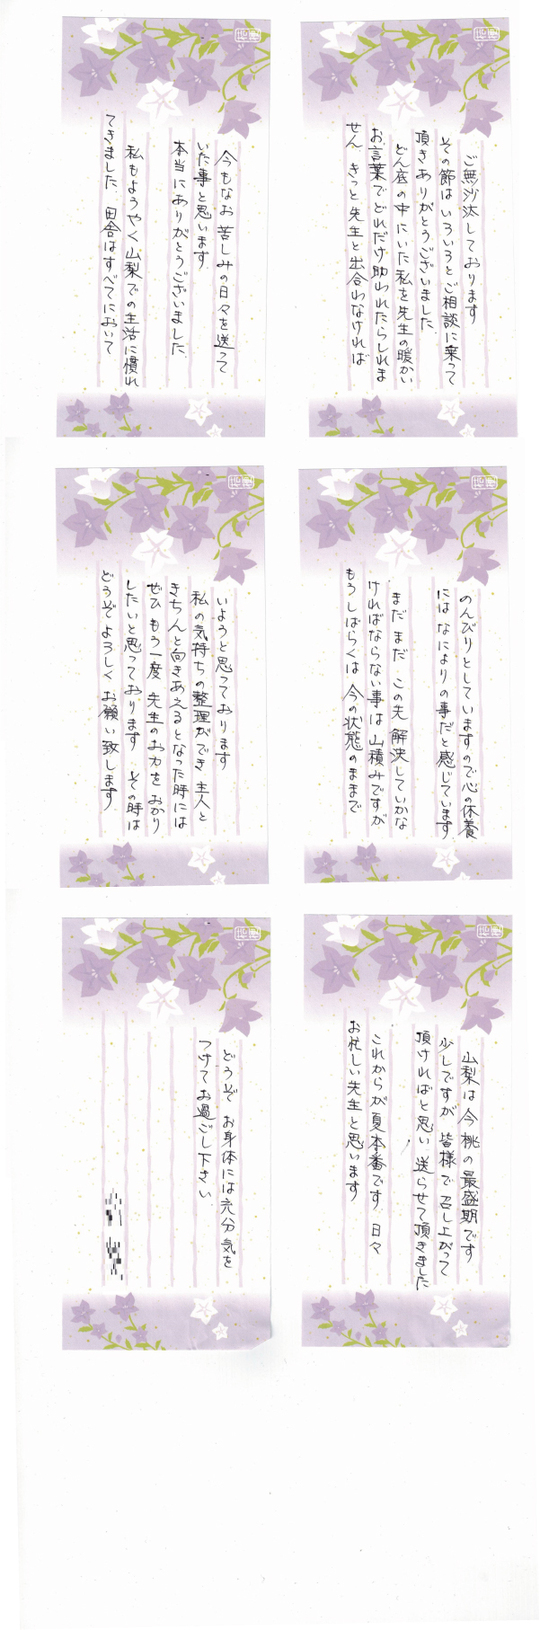 ご無沙汰しております
その節はいろいろとご相談に乗って
頂きありがとうございました
どん底の中にいた私を先生の暖かい
お言葉でどれだけ助われたらしれま
せん きっと先生と出合わなければ
今もなお 苦しみの日々を送って
いた事と思います
本当にありがとうございました
私もようやく山梨での生活に慣れ
てきました 田舎はすべてにおいて
のんびりとしていますので心の休養
にはなによりの事だと感じています
まだまだ この先 解決していかな
ければならない事は山積みですが
もうしばらくは 今の状態のままで
いようと思っております
私の気持ちの整理ができ 主人と
きちんと向きあえるとなった時には
ぜひ もう一度 先生のお力を おかり
したいと思っております その時は
どうぞ よろしく お願い致します
山梨は 今 桃の最盛期です
少しですが 皆様で 召し上がって
頂ければと思い 送らせて頂きました
これからが夏本番です 日々
お忙しい先生と思います
どうぞ お身体には充分気を
つけてお過ごし下さい